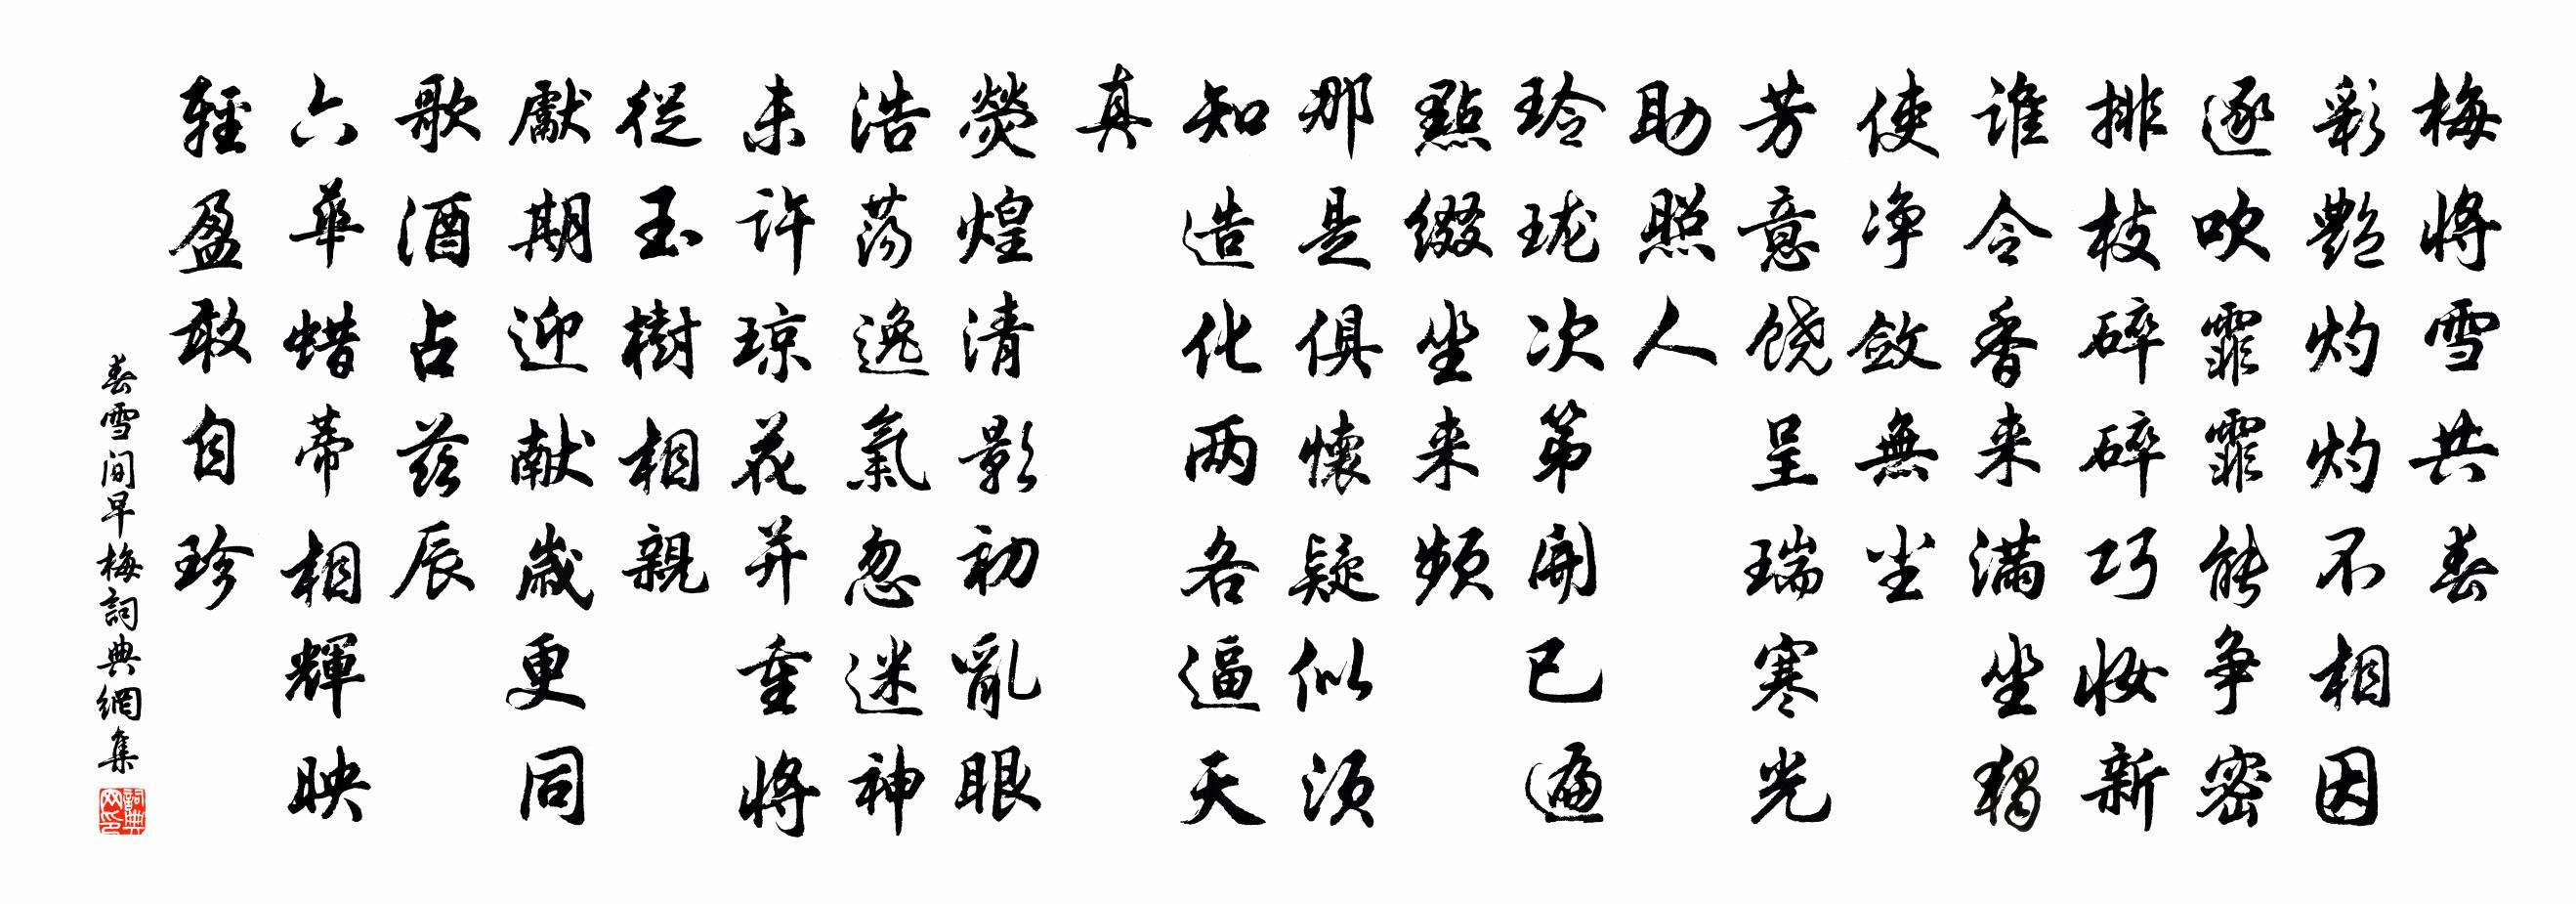 梅将雪共春
彩艷灼灼不相因
逐吹霏霏能争密
排枝碎碎巧妝新
谁令香来满坐獨
使净斂無尘
芳意饒呈瑞寒光
助照人
玲珑次第開已遍
點綴坐来頻
那是俱懷疑似须
知造化两各逼天
真
熒煌清影初亂眼
浩荡逸氣忽迷神
未許琼花并重将
從玉樹相親
獻期迎献歲更同
歌酒占兹辰
六華蜡蒂相輝映
輕盈敢自珍
春雪间早梅詞典網集
詞典网印